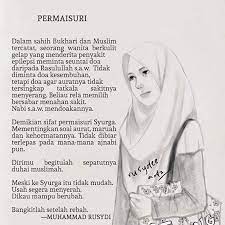 PERMAISURI
Dalam sahih Bukhari dan Muslim
tercatat, seorang wanita berkulit
gelap yang menderita penyakit
epilepsi meminta seuntai doa
daripada Rasulullah s.a.w. Tidak
diminta doa kesembuhan,
tetapi doa agar auratnya tidak
tersingkap tatkala sakitnya
menyerang. Beliau rela memilih
bersabar menahan sakit.
Nabi s.a.w. mendoakannya.
Demikian sifat permaisuri Syurga.
Mementingkan soal aurat, maruah
dan kehormatannya. Tidak dibiar
terlepas pada mana-mana ajnabi
pun.
Dirimu begitulah sepatutnya
duhai muslimah.
Meski ke Syurga itu tidak mudah.
Usah segera menyerah.
Dikau mampu berubah.
Bangkitlah setelah rebah.
—MUHAMMAD RUSYDI
rusydee
artz